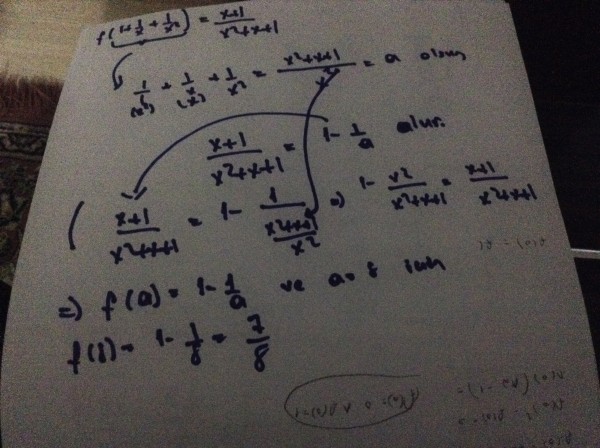 f(1+1/x+1/x²) = x+1/x²+x+1
1/1 + 1/x + 1/x² = x²+x+1/x² = a olsun
(x²) (x)
x+1/x²+x+1 = 1-1/a olur.
( x+1/x²+x+1 = 1 - 1/(x²+x+1/x²) => 1 - x²/x²+x+1 = x+1/x²+x+1
=> f(a) = 1-1/a ve a=8 için
f(8) = 1-1/8 = 7/8